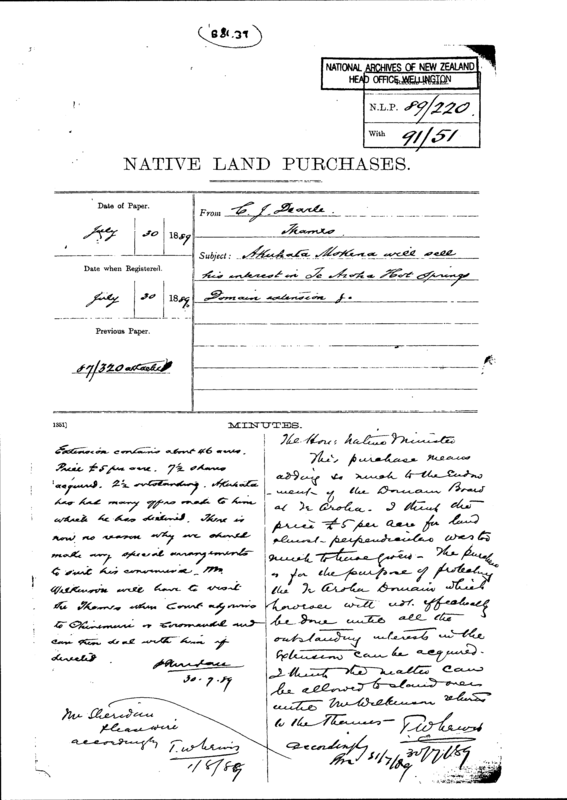 881.39
NATIONAL ARCHIVES OF NEW ZEALAND
HEAD OFFICE WELLINGTON
N.L.P. 89/220
With 91/51
NATIVE LAND PURCHASES.
Date of Paper.
July 30 1889
Date when Registered.
July 30 1889.
Previous Paper.
87/320 attached
From C. J. Dearle.
Thames
Subject: Akuhata Mokena will sell
his interest in Te Aroha Hot Springs
Domain extension
1351]
MINUTES.
Extension contains about 46 acres.
Price £5 per acre. 7½ shares
acquired. 2½ outstanding. Akuhata
has had many offers made to him
which he has declined. There is
now no reason why we should
make any special arrangements
to suit his convenience. Mr.
Wilkinson will have to visit
the Thames when Court adjourns
to Ohinemuri or Coromandel and
can then deal with him if
desired
30.7.89
Mr Sheridan
Please wire
accordingly
T.W. Lewis
1/8/89
The Hon: Native Minister
This purchase means
adding so much to the endow
-ment of the Domain Board
at Te Aroha. I think the
price £5 per acre for land
almost perpendicular was too
much to have given - The purchase
is for the purpose of protecting
the Te Aroha Domain which
however will not effectually
be done until all the
outstanding interests in the
Extension can be acquired.
I think the matter can
be allowed to stand over
until Mr Wilkinson returns
to the Thames -
T.W. Lewis
30/7/89
accordingly
31/7/89